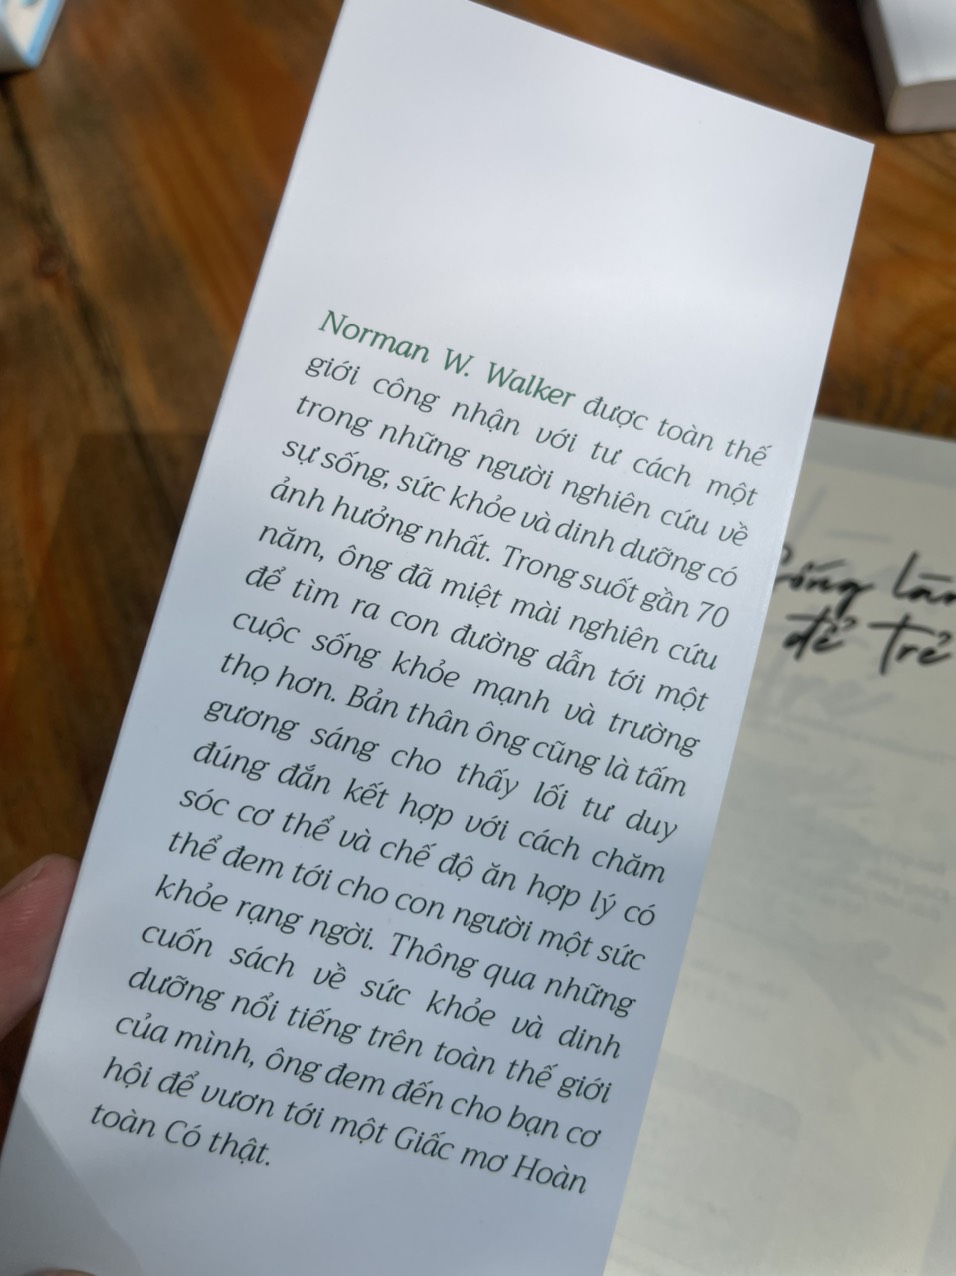 Norman W. Walker được toàn thế
giới công nhận với tư cách một
trong những người nghiên cứu về
sự sống, sức khỏe và dinh dưỡng có
ảnh hưởng nhất. Trong suốt gần 70
năm, ông đã miệt mài nghiên cứu
để tìm ra con đường dẫn tới một
cuộc sống khỏe mạnh và trường
thọ hơn. Bản thân ông cũng là tấm
gương sáng cho thấy lối tư duy
đúng đắn kết hợp với cách chăm
sóc cơ thể và chế độ ăn hợp lý có
thể đem tới cho con người một sức
khỏe rạng ngời. Thông qua những
cuốn sách về sức khỏe và dinh
dưỡng nổi tiếng trên toàn thế giới
của mình, ông đem đến cho bạn cơ
hội để vươn tới một Giấc mơ Hoàn
toàn Có thật.
để trẻ